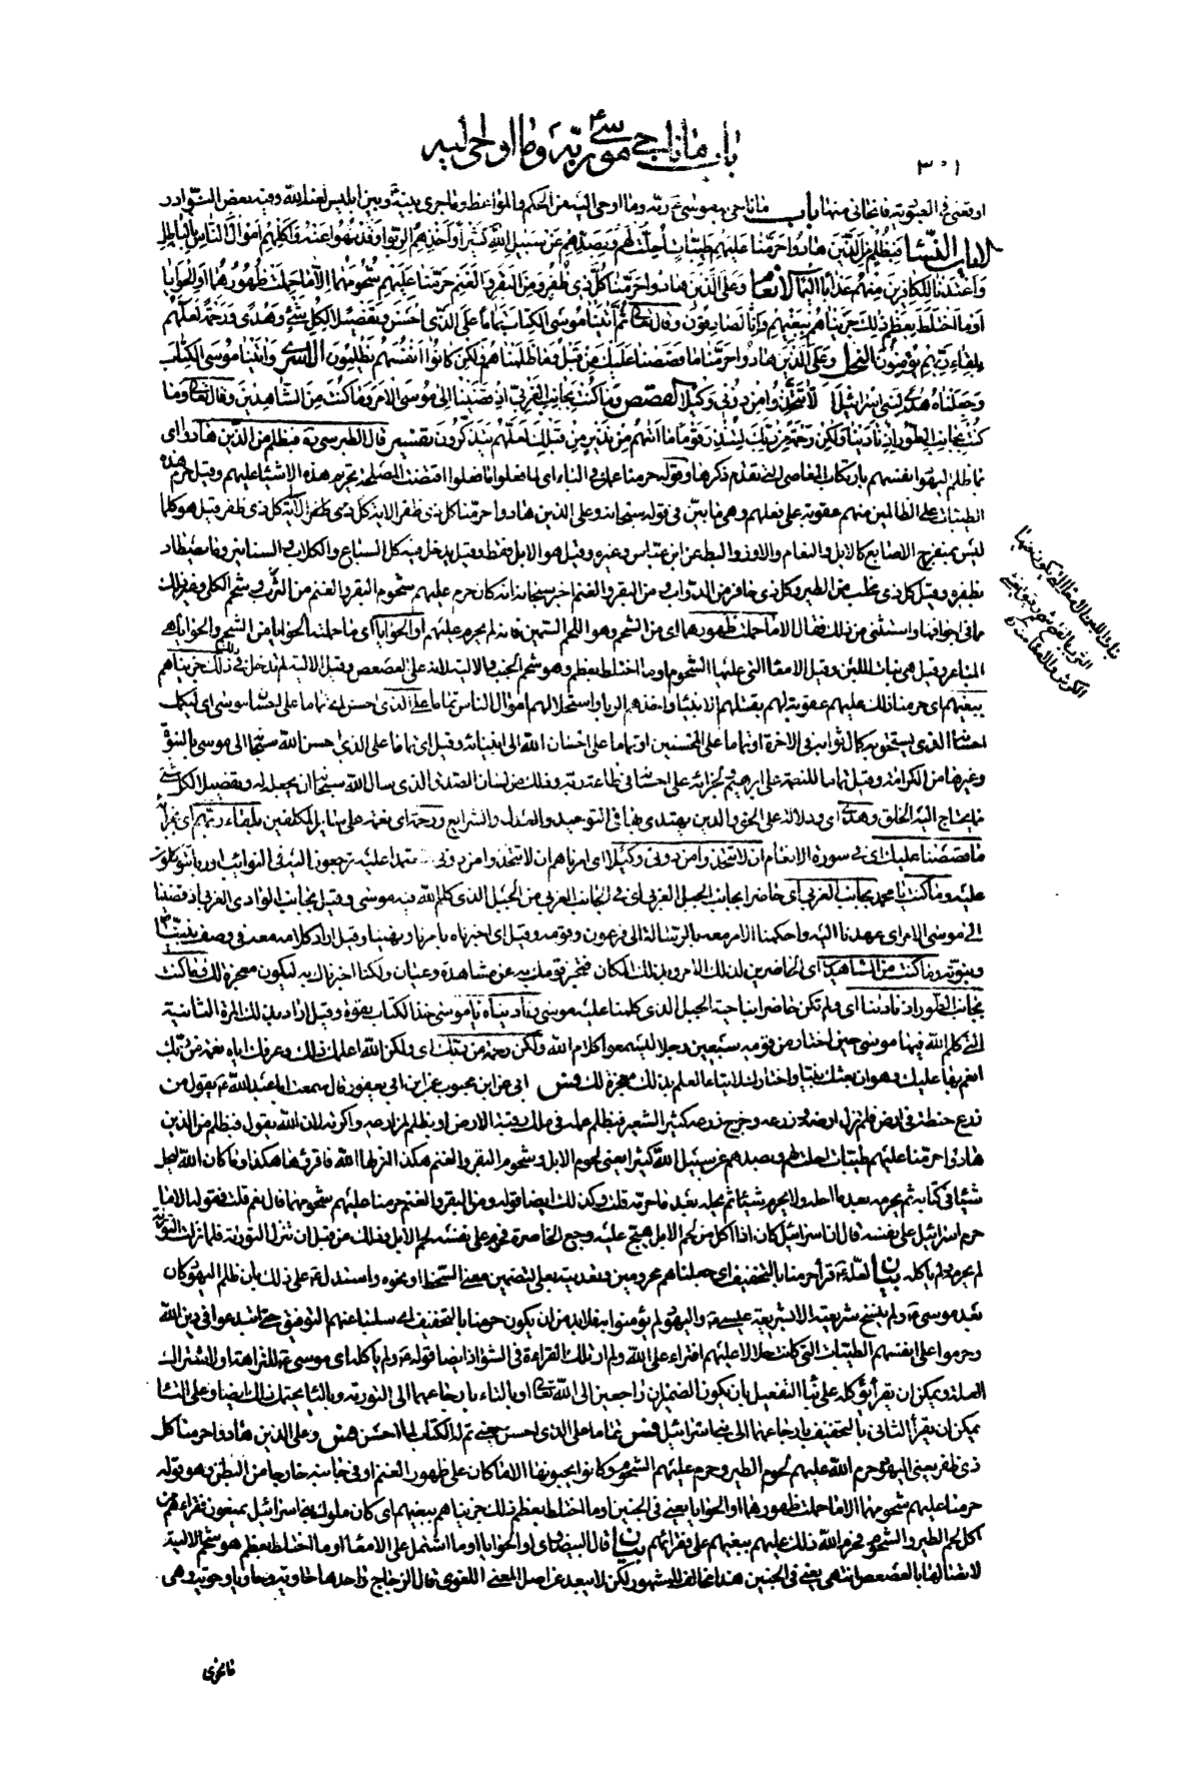 باب ما ناجى به موسى ع ربه وما اوحى اليه
٣٠١
او تعنى فى العبودية فاتخذانى منها باب ما ناجى به موسى ع ربه وما اوحى اليه من الحكم والمواعظ وما جرى بينه وبين ابليس لعنه الله وفيه بعض النوادر
الايات النسا فبظلم من الذين هادوا حرمنا عليهم طيبات احلت لهم وبصدهم عن سبيل الله كثيرا واخذهم الربوا وقد نهوا عنه واكلهم اموال الناس بالباطل
واعتدنا للكافرين منهم عذابا اليما الانعام وعلى الذين هادوا حرمنا كل ذى ظفر ومن البقر والغنم حرمنا عليهم شحومهما الا ما حملت ظهورهما او الحوايا
او ما اختلط بعظم ذلك جزيناهم ببغيهم وانا لصادقون وقال تعالى ثم اتينا موسى الكتاب تماما على الذى احسن وتفصيلا لكل شئ وهدى ورحمة لعلهم
بلقاء ربهم يؤمنون النحل وعلى الذين هادوا حرمنا ما قصصنا عليك من قبل وما ظلمناهم ولكن كانوا انفسهم يظلمون الاسرى واتينا موسى الكتاب
وجعلناه هدى لبنى اسرائيل الا تتخذوا من دونى وكيلا القصص وما كنت بجانب الغربى اذ قضينا الى موسى الامر وما كنت من الشاهدين وقال تعالى وما
كنت بجانب الطور اذ نادينا ولكن رحمة من ربك لتنذر قوما ما اتيهم من نذير من قبلك لعلهم يتذكرون تفسير قال الطبرسى ره فبظلم من الذين هادوا اى
بما ظلم اليهود انفسهم بارتكاب المعاصى التى تقدم ذكرها وقوله حرمنا عليهم طيبات اى لما فعلوا ما فعلوا اقتضت المصلحة تحريم هذه الاشياء عليهم وقيل حرم هذه
الطيبات على الظالمين منهم عقوبة على فعلهم وهى ما بين فى قوله سبحانه وعلى الذين هادوا حرمنا كل ذى ظفر الاية كل ذى ظفر قيل هو كلما
ليس بمنفرج الاصابع كالابل والنعام والاوز والبط عن ابن عباس وغيره وقيل هو الابل فقط وقيل يدخل فيه كل السباع والكلاب والسنانير وما يصطاد
بظفره وقيل كل ذى مخلب من الطير وكل ذى حافر من الدواب ومن البقر والغنم اخبر سبحانه انه كان حرم عليهم شحوم البقر والغنم من الثرب وشحم الكلى وغير ذلك
ما فى اجوافها واستثنى من ذلك فقال الا ما حملت ظهورهما اى من الشحم وهو اللحم السمين فانه لم يحرم عليهم او الحوايا اى ما حملته الحوايا من الشحم والحوايا هى
المباعر وقيل هى بنات اللبن وقيل الامعاء التى عليها الشحوم او ما اختلط بعظم وهو شحم الجنب والالية لانه على العصعص وقيل الالية لم تدخل فى ذلك ذلك جزيناهم
ببغيهم اى حرمنا ذلك عليهم عقوبة لهم بقتلهم الانبياء واخذهم الربا واستحلالهم اموال الناس تماما على الذى احسن اى تماما على احسان موسى اى ليكمل
احسانه الذى يستحق به كمال ثوابه فى الاخرة او تماما على المحسنين او تماما على احسان الله الى انبيائه وقيل اى تماما على الذى احسن الله سبحانه الى موسى بالنبوة
وغيرها من الكرامة وقيل تماما للنعمة على ابراهيم ولجزائه على احسانه فى طاعة ربه وذلك من لسان الصدق الذى سال الله سبحانه ان يجعله له وتفصيلا لكل شئ
مما يحتاج اليه الخلق وهدى اى ودلالة على الحق والدين يهتدى بها فى التوحيد والعدل والشرايع ورحمة اى نعمة على ساير المكلفين بلقاء ربهم اى بجزائه
ما قصصنا عليك اى فى سورة الانعام ان لا تتخذوا من دونى وكيلا اى امرناهم ان لا تتخذوا من دونى معتمدا عليه ترجعون اليه فى النوائب او ربا تتوكلون
عليه وما كنت يا محمد بجانب الغربى اى حاضرا بجانب الجبل الغربى اى فى الجانب الغربى من الجبل الذى كلم الله فيه موسى وقيل بجانب الوادى الغربى اذ قضينا
الى موسى الامر اى عهدنا اليه واحكمنا الامر معه بالرسالة الى فرعون وقومه وقيل اى اخبرناه بامرنا ونهينا وقيل اراد كلامه معه فى وصف نبينا
ونبوته وما كنت من الشاهدين اى الحاضرين لذلك الامر وبذلك المكان فتخبر قومك به عن مشاهدة وعيان ولكنا اخبرناك به ليكون معجزة لك وما كنت
بجانب الطور اذ نادينا اى ولم تكن حاضرا بناحية الجبل الذى كلمنا عليه موسى وناديناه يا موسى خذ الكتاب بقوة وقيل اراد بذلك المرة الثانية
التى كلم الله فيها موسى حين اختار من قومه سبعين رجلا ليسمعوا كلام الله ولكن رحمة من ربك اى ولكن الله اعلمك ذلك وعرفك اياه نعمة من ربك
انعم بها عليك وهو ان بعثك نبيا واختارك لايتاء العلم بذلك معجزة لك فس ابى عن ابن محبوب عن ابن ابى يعفور قال سمعت ابا عبد الله ع يقول من
زرع حنطة فى ارض فلم تزك ارضه وزرعه وخرج زرعه كثير الشعير فبظلم عمله فى ملك رقبة الارض او بظلم لمزارعه واكرته لان الله يقول فبظلم من الذين
هادوا حرمنا عليهم طيبات احلت لهم وبصدهم عن سبيل الله كثيرا يعنى لحوم الابل وشحوم البقر والغنم هكذا انزلها الله فاقرؤها هكذا وما كان الله ليحل
شيئا فى كتابه ثم يحرمه بعد ما احله ولا يحرم شيئا ثم يحله بعد ما حرمه قلت وكذلك ايضا قوله ومن البقر والغنم حرمنا عليهم شحومهما قال نعم قلت فقوله الا ما
حرم اسرائيل على نفسه قال ان اسرائيل كان اذا اكل من لحم الابل هيج عليه وجع الخاصرة فحرم على نفسه لحم الابل وذلك من قبل ان تنزل التورية فلما نزلت التورية
لم يحرمه ولم ياكله بيان لعله ع قرأ حرمنا بالتخفيف اى جعلناهم محرومين وتعديته بعلى لتضمين معنى السخط او نحوه واستدل ع على ذلك بان ظلم اليهود كان
بعد موسى ع ولم ينسخ شريعته الا شريعة عيسى ع واليهود لم يؤمنوا به فلا بد من ان يكون حرمنا بالتخفيف اى سلبنا عنهم التوفيق حتى ابتدعوا فى دين الله
وحرموا على انفسهم الطيبات التى كانت حلالا عليهم افتراء على الله ولم ار تلك القراءة فى الشواذ ايضا قوله ع ولم ياكله اى موسى ع للنزاهة او لاشتراك
العلة ويمكن ان يقرأ يؤكله على بناء التفعيل بان يكون الضميران راجعين الى الله تعالى او بالتاء بارجاعهما الى التورية وبالياء يحتمل ذلك ايضا وعلى التاء
يمكن ان يقرأ الثانى بالتخفيف بارجاعهما الى بنى اسرائيل فس تماما على الذى احسن يعنى تم له الكتاب لما احسن فس وعلى الذين هادوا حرمنا كل
ذى ظفر يعنى اليهود حرم الله عليهم لحوم الطير وحرم عليهم الشحوم وكانوا يحبونها الا ما كان على ظهور الغنم او فى جانبه خارجا من البطن وهو قوله
حرمنا عليهم شحومهما الا ما حملت ظهورهما او الحوايا يعنى فى الجنبين او ما اختلط بعظم ذلك جزيناهم ببغيهم اى كان ملوك بنى اسرائيل يمنعون فقراءهم من
اكل لحم الطير والشحوم فحرم الله ذلك عليهم ببغيهم على فقرائهم بيان قال البيضاوى او الحوايا او ما اشتمل على الامعاء او ما اختلط بعظم هو شحم الالية
لاتصالها بالعصعص انتهى يعنى فى الجنبين هذا مخالف للمشهور لكن لا يبعد عن اصل المعنى اللغوى قال الزجاج واحدها حاوية وحاويا وحوية وهى
ما تحوى